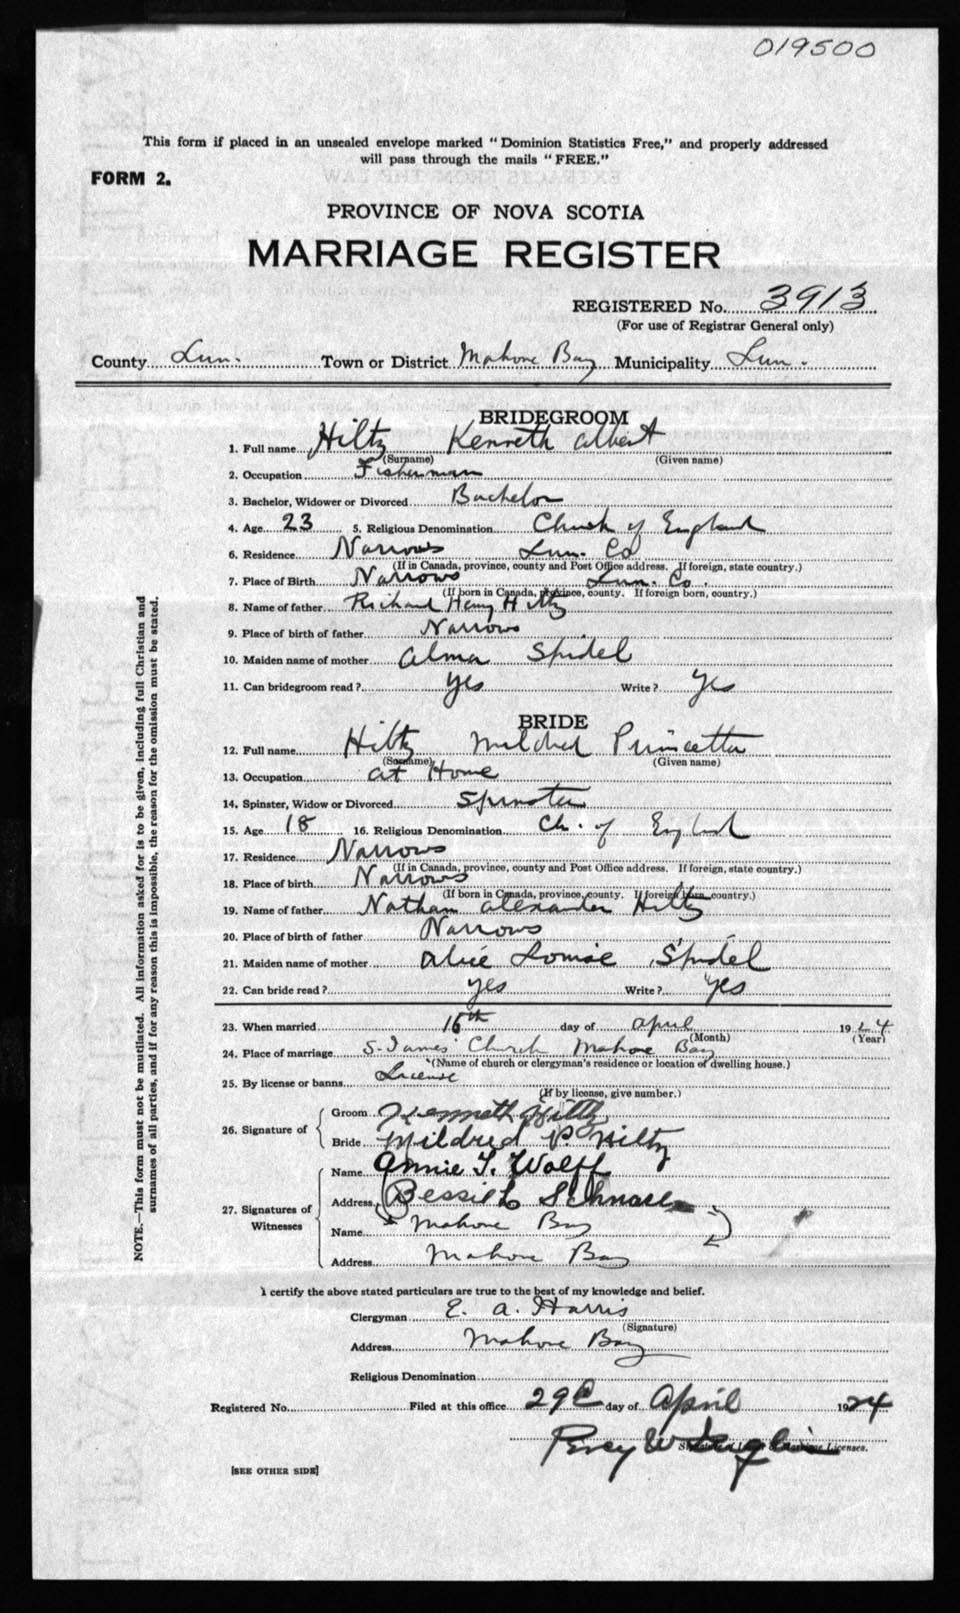 019500
This form if placed in an unsealed envelope marked "Dominion Statistics Free," and properly addressed
will pass through the mails "FREE."
FORM 2.
PROVINCE OF NOVA SCOTIA
MARRIAGE REGISTER
REGISTERED No. 3913
(For use of Registrar General only)
County Lun. Town or District Mahone Bay Municipality Lun.
BRIDEGROOM
1. Full name Hiltz Kenneth Albert
(Surname) (Given name)
2. Occupation Fisherman
3. Bachelor, Widower or Divorced Bachelor
4. Age 23 5. Religious Denomination Church of England
6. Residence Narrows Lun. Co
(If in Canada, province, county and Post Office address. If foreign, state country.)
7. Place of Birth Narrows Lun. Co.
(If born in Canada, province, county. If foreign born, country.)
8. Name of father Richard Henry Hiltz
9. Place of birth of father Narrows
10. Maiden name of mother Alma Spidel
11. Can bridegroom read? Yes Write? Yes
BRIDE
12. Full name Hiltz Mildred Princetta
(Surname) (Given name)
13. Occupation at Home
14. Spinster, Widow or Divorced Spinster
15. Age 18 16. Religious Denomination Ch. of England
17. Residence Narrows
(If in Canada, province, county and Post Office address. If foreign, state country.)
18. Place of birth Narrows
(If born in Canada, province, county. If foreign born, country.)
19. Name of father Nathan Alexander Hiltz
20. Place of birth of father Narrows
21. Maiden name of mother Alice Louise Spidel
22. Can bride read? Yes Write? Yes
23. When married 16th day of April 1924
(Month) (Year)
24. Place of marriage S. James' Church Mahone Bay
(Name of church or clergyman's residence or location of dwelling house.)
25. By license or banns License
(If by license, give number.)
26. Signature of Groom Kenneth Hiltz
Bride Mildred P. Hiltz
27. Signatures of Witnesses Name Annie T. Wolff
Address Bessie L Schnare
Name Mahone Bay
Address Mahone Bay
I certify the above stated particulars are true to the best of my knowledge and belief.
Clergyman E. A. Harris
(Signature)
Address Mahone Bay
Religious Denomination
Registered No. Filed at this office 29 day of April 1924
Percy W
Licenses.
[SEE OTHER SIDE]
NOTE.—This form must not be mutilated. All information asked for is to be given, including full Christian and
surnames of all parties, and if for any reason this is impossible, the reason for the omission must be stated.